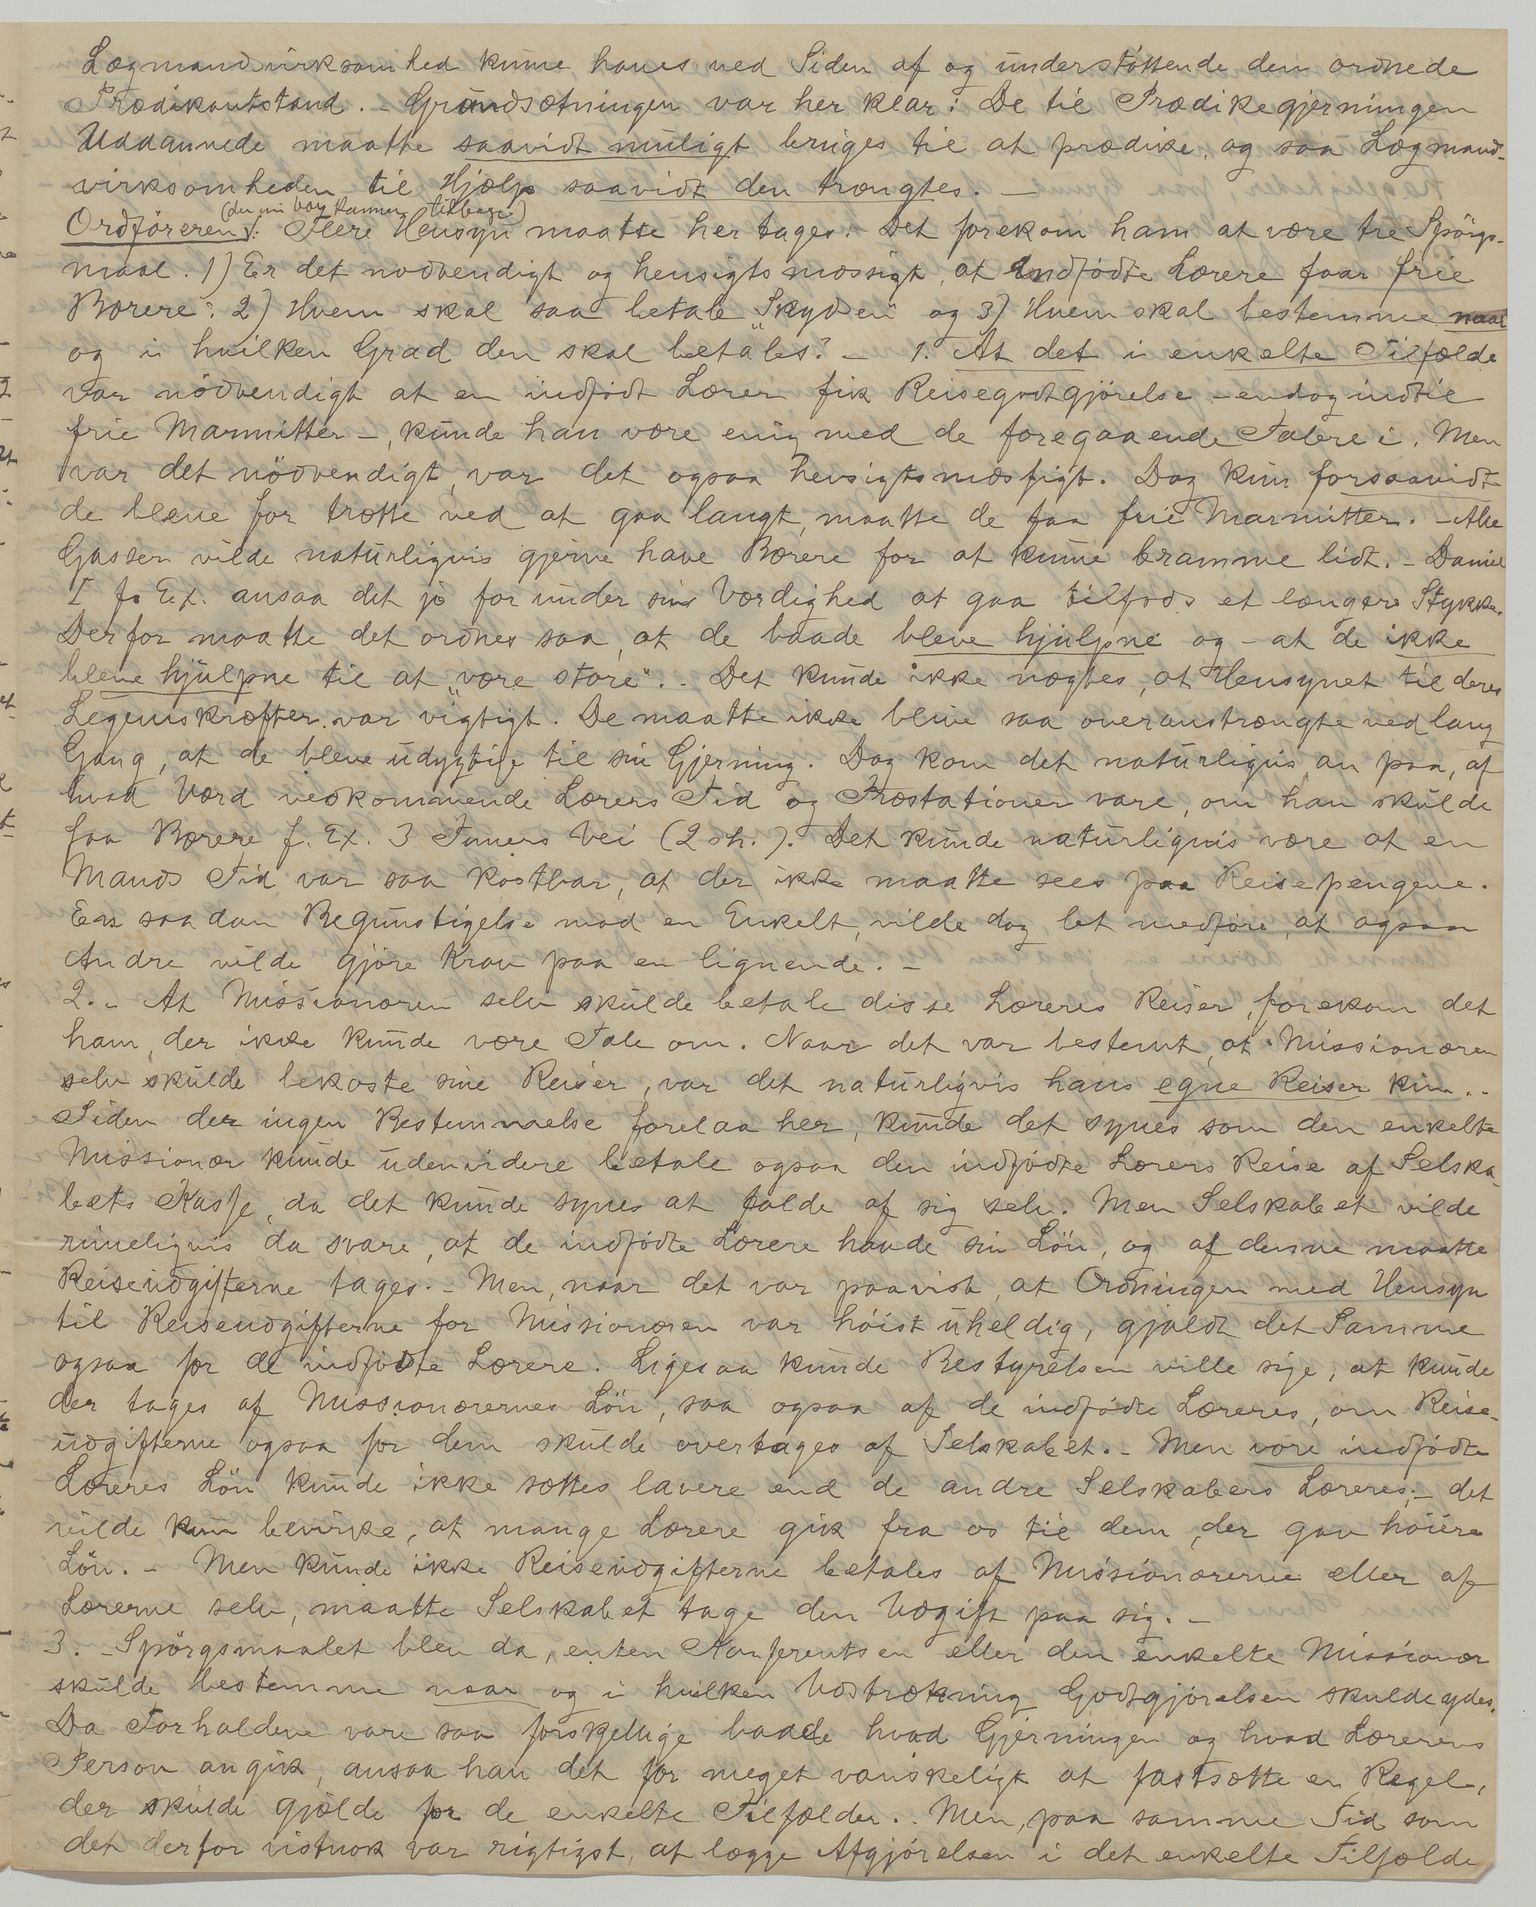 Lægmandsvirksomhed kunne haves ved Siden af og understøttende den ordnede
Prædikantstand. - Grundsætningen var her klar: De til Prædikegjerningen
Uddannede maatte saavidt muligt bruges til at prædike, og saa Lægmands-
virksomheden til Hjælp saavidt den trængtes. —
Ordføreren: Flere Hensyn maatte her tages. Det forekom ham at være tre Spörgs-
maal. 1) Er det nødvendigt og hensigtsmæssigt, at Indfødte Lærere faar frie
Bærere; 2) Hvem skal saa betale "Skydsen" og 3) Hvem skal bestemme naar
og i hvilken Grad den skal betales? - 1. At det i enkelte Tilfælde
var nödvendigt at en indfødt Lærer fik Reisegodtgjörelse - endog indtil
frie Marmitter -, kunde han være enig med de foregaaende Talere i. Men
var det nödvendigt, var det ogsaa hensigtsmæssigt. Dog kun forsaavidt
de bleve for trætte ved at gaa langt, maatte de faa frie Marmitter. - Alle
Gasser vilde naturligvis gjerne have Bærere for at kunne bramme lidt. - Daniel
I f. Ex. ansaa det jo for under sin Værdighed at gaa tilfods et længere Stykke.
Derfor maatte det ordnes saa, at de baade bleve hjulpne og - at de ikke
bleve hjulpne til at "være store". - Det kunde ikke nægtes, at Hensynet til deres
Legemskræfter var vigtigt. De maatte ikke blive saa overanstrængte ved lang
Gang, at de bleve udygtige til sin Gjerning. Dog kom det naturligvis an paa, af
hvad Værd vedkommende Lærers Tid og Præstationer vare, om han skulde
faa Bærere f. Ex. 3 Timers Vei (2 sh.). Det kunde naturligvis være at en
Mands Tid var saa kostbar, at der ikke maatte sees paa Reisepengene.
En saadan Begunstigelse mod en Enkelt, vilde dog let medføre, at ogsaa
Andre vilde gjöre Krav paa en lignende. -
2. - At Missionæren selv skulde betale disse Læreres Reiser, forekom det
ham, der ikke kunde være Tale om. Naar det var bestemt, at Missionæren
selv skulde bekoste sine Reiser, var det naturligvis hans egne Reiser kun. -
Siden der ingen Bestemmelse forelaa her, kunde det synes som den enkelte
Missionær kunde udenvidere betale ogsaa den indfødte Lærers Reise af Selska-
bets Kasse, da det kunde synes at falde af sig selv. Men Selskabet vilde
rimeligvis da svare, at de indfødte Lærere havde sin Lön, og af denne maatte
Reiseudgifterne tages. - Men, naar det var paavist, at Ordningen med Hensyn
til Reiseudgifterne for Missionæren var höist uheldig, gjaldt det Samme
ogsaa for de indfødte Lærere. Ligesaa kunde Bestyrelsen ville sige, at kunde
der tages af Missionærernes Lön, saa ogsaa af de indfødte Læreres, om Reise-
udgifterne ogsaa for dem skulde overtages af Selskabet. - Men vore indfødte
Læreres Lön kunde ikke sættes lavere end de andre Selskabers Læreres; - det
vilde kun bevirke, at mange Lærere gik fra os til dem, der gav höiere
Lön. - Men kunde ikke Reiseudgifterne betales af Missionærerne eller af
Lærerne selv, maatte Selskabet tage den Udgift paa sig. -
3. - Spörgsmaalet blev da, enten Konferentsen eller den enkelte Missionær
skulde bestemme naar og i hvilken Udstrækning Godtgjörelsen skulde ydes.
Da Forholdene vare saa forskjellige baade hvad Gjerningen og hvad Lærerens
Person angik, ansaa han det for meget vanskeligt at fastsætte en Regel,
der skulde gjælde for de enkelte Tilfælder. - Men, paa samme Tid som
det derfor vistnok var rigtigst, at lægge Afgjörelsen i det enkelte Tilfælde